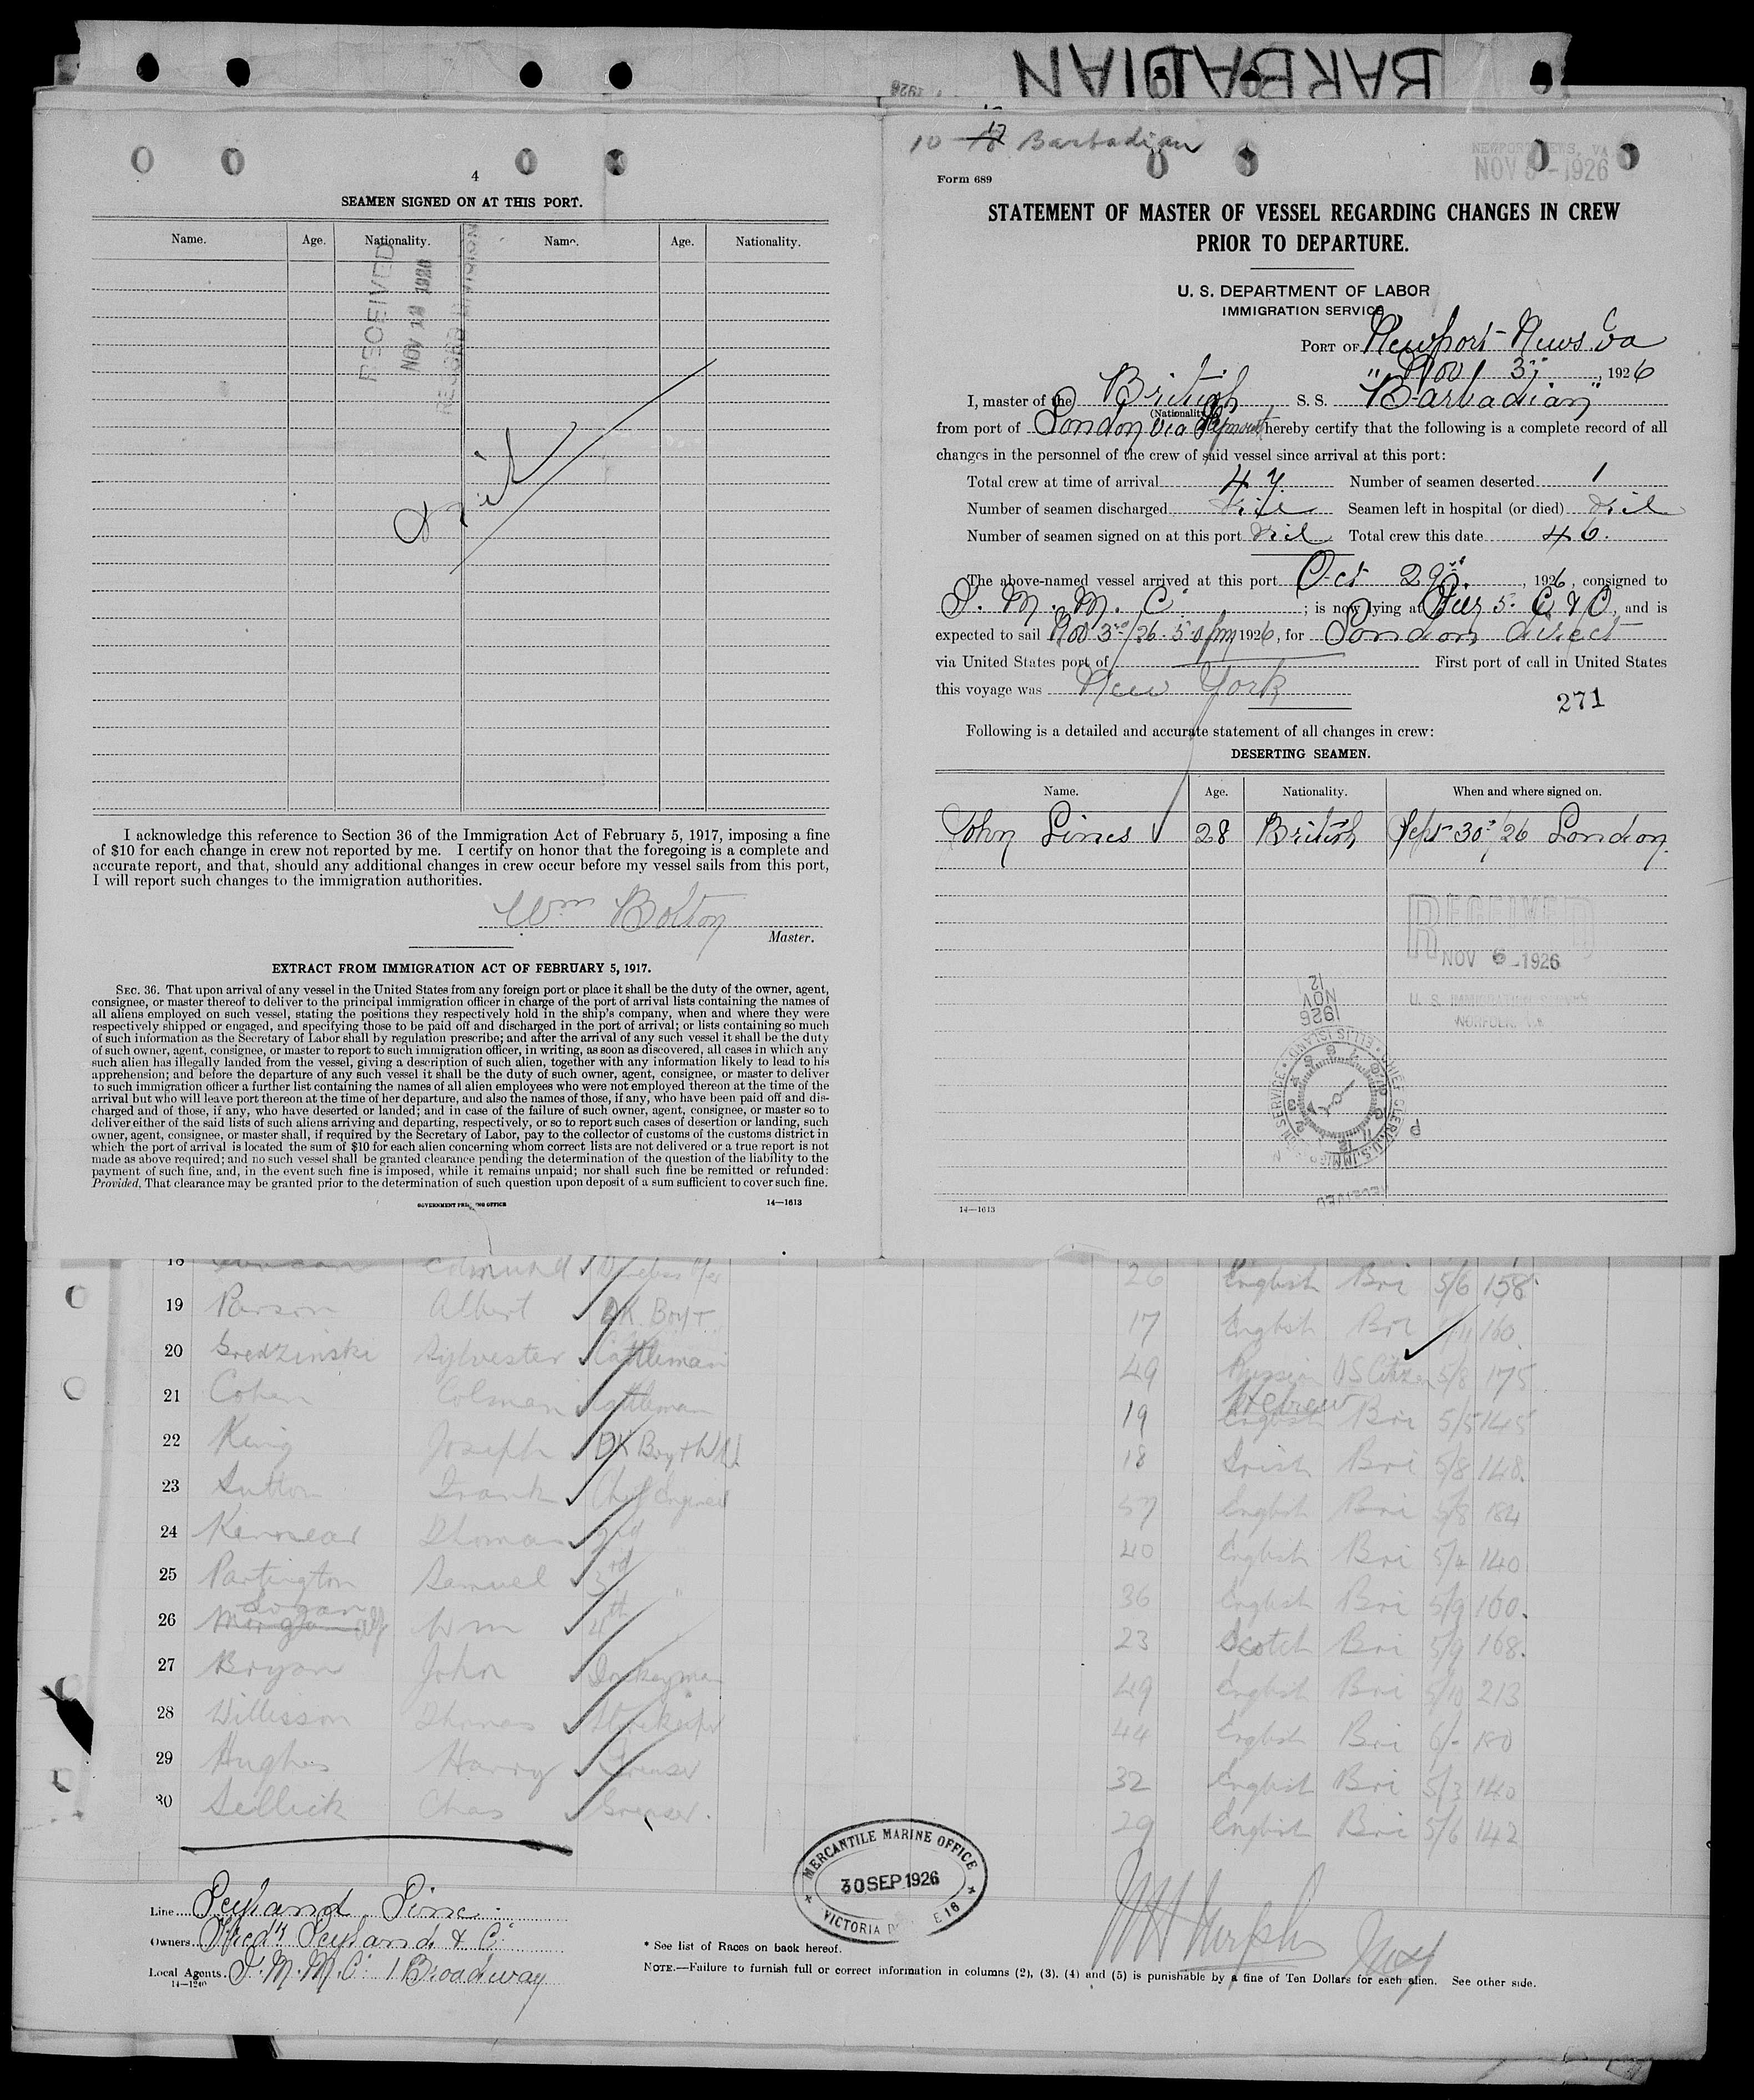 BARBADIAN
1926
4
SEAMEN SIGNED ON AT THIS PORT.
Name. Age. Nationality. Name. Age. Nationality.
RECEIVED
NOV 1926
RECORD DIVISION
Nil
I acknowledge this reference to Section 36 of the Immigration Act of February 5, 1917, imposing a fine
of $10 for each change in crew not reported by me. I certify on honor that the foregoing is a complete and
accurate report, and that, should any additional changes in crew occur before my vessel sails from this port,
I will report such changes to the immigration authorities.
Wm Bolton
Master.
EXTRACT FROM IMMIGRATION ACT OF FEBRUARY 5, 1917.
SEC. 36. That upon arrival of any vessel in the United States from any foreign port or place it shall be the duty of the owner, agent,
consignee, or master thereof to deliver to the principal immigration officer in charge of the port of arrival lists containing the names of
all aliens employed on such vessel, stating the positions they respectively hold in the ship's company, when and where they were
respectively shipped or engaged, and specifying those to be paid off and discharged in the port of arrival; or lists containing so much
of such information as the Secretary of Labor shall by regulation prescribe; and after the arrival of any such vessel it shall be the duty
of such owner, agent, consignee, or master to report to such immigration officer, in writing, as soon as discovered, all cases in which any
such alien has illegally landed from the vessel, giving a description of such alien, together with any information likely to lead to his
apprehension; and before the departure of any such vessel it shall be the duty of such owner, agent, consignee, or master to deliver
to such immigration officer a further list containing the names of all alien employees who were not employed thereon at the time of the
arrival but who will leave port thereon at the time of her departure, and also the names of those, if any, who have been paid off and dis-
charged and of those, if any, who have deserted or landed; and in case of the failure of such owner, agent, consignee, or master so to
deliver either of the said lists of such aliens arriving and departing, respectively, or so to report such cases of desertion or landing, such
owner, agent, consignee, or master shall, if required by the Secretary of Labor, pay to the collector of customs of the customs district in
which the port of arrival is located the sum of $10 for each alien concerning whom correct lists are not delivered or a true report is not
made as above required; and no such vessel shall be granted clearance pending the determination of the question of the liability to the
payment of such fine, and, in the event such fine is imposed, while it remains unpaid; nor shall such fine be remitted or refunded:
Provided, That clearance may be granted prior to the determination of such question upon deposit of a sum sufficient to cover such fine.
GOVERNMENT PRINTING OFFICE 14—1613
10 12 Barbadian
NEWPORT NEWS, VA
NOV 5-1926
Form 689
STATEMENT OF MASTER OF VESSEL REGARDING CHANGES IN CREW
PRIOR TO DEPARTURE.
U. S. DEPARTMENT OF LABOR
IMMIGRATION SERVICE
PORT OF Newport News Va
Nov 3, 1926
I, master of the British S. S. "Barbadian"
(Nationality)
from port of London via Plymouth hereby certify that the following is a complete record of all
changes in the personnel of the crew of said vessel since arrival at this port:
Total crew at time of arrival 47. Number of seamen deserted 1
Number of seamen discharged Nil Seamen left in hospital (or died) Nil
Number of seamen signed on at this port Nil Total crew this date 46.
The above-named vessel arrived at this port Oct 29, 1926, consigned to
I. M. M. Co; is now lying at Pier 5. C & O, and is
expected to sail Nov 3rd/26 5.0 pm 1926, for London direct
via United States port of First port of call in United States
this voyage was New York
271
Following is a detailed and accurate statement of all changes in crew:
DESERTING SEAMEN.
Name. Age. Nationality. When and where signed on.
John Lines 28 British Sept 30/26 London.
RECEIVED
NOV 6-1926
U. S. IMMIGRATION SERVICE
NORFOLK, VA.
12
NOV
1926
CHIEF CLERK U.S. IMMIGRATION SERVICE ELLIS ISLAND
P
RECEIVED
14—1613
18 Edmund Wireless 26 English Bri 5/6 158
19 Parson Albert DK. Boy 17 English Bri 160
20 Gredzinski Sylvester Cattleman 49 Russian US Citizen 5/8 175
21 Cohen Colman Cattleman 19 English Hebrew Bri 5/5 145
22 King Joseph DK Boy 18 Irish Bri 5/8 148.
23 Sutton Frank Chief Engineer 57 English Bri 5/8 184
24 Kennear Thomas 2nd 40 English Bri 5/4 140
25 Partington Samuel 3rd " 36 English Bri 5/9 160.
26 Morgan Logan Wm 4th 23 Scotch Bri 5/9 168.
27 Bryan John Donkeyman 49 English Bri 5/10 213
28 Willisson Thomas Storekeeper 44 English Bri 6/- 180
29 Hughes Harry Greaser 32 English Bri 5/3 140
30 Sellick Chas Greaser. 29 English Bri 5/6 142
MERCANTILE MARINE OFFICE
30 SEP 1926
VICTORIA E 16
Line Leyland Line.
Owners Fredk Leyland & Co
Local Agents. I. M. M. Co. 1. Broadway
14—1240
* See list of Races on back hereof.
NOTE.—Failure to furnish full or correct information in columns (2), (3), (4) and (5) is punishable by a fine of Ten Dollars for each alien. See other side.